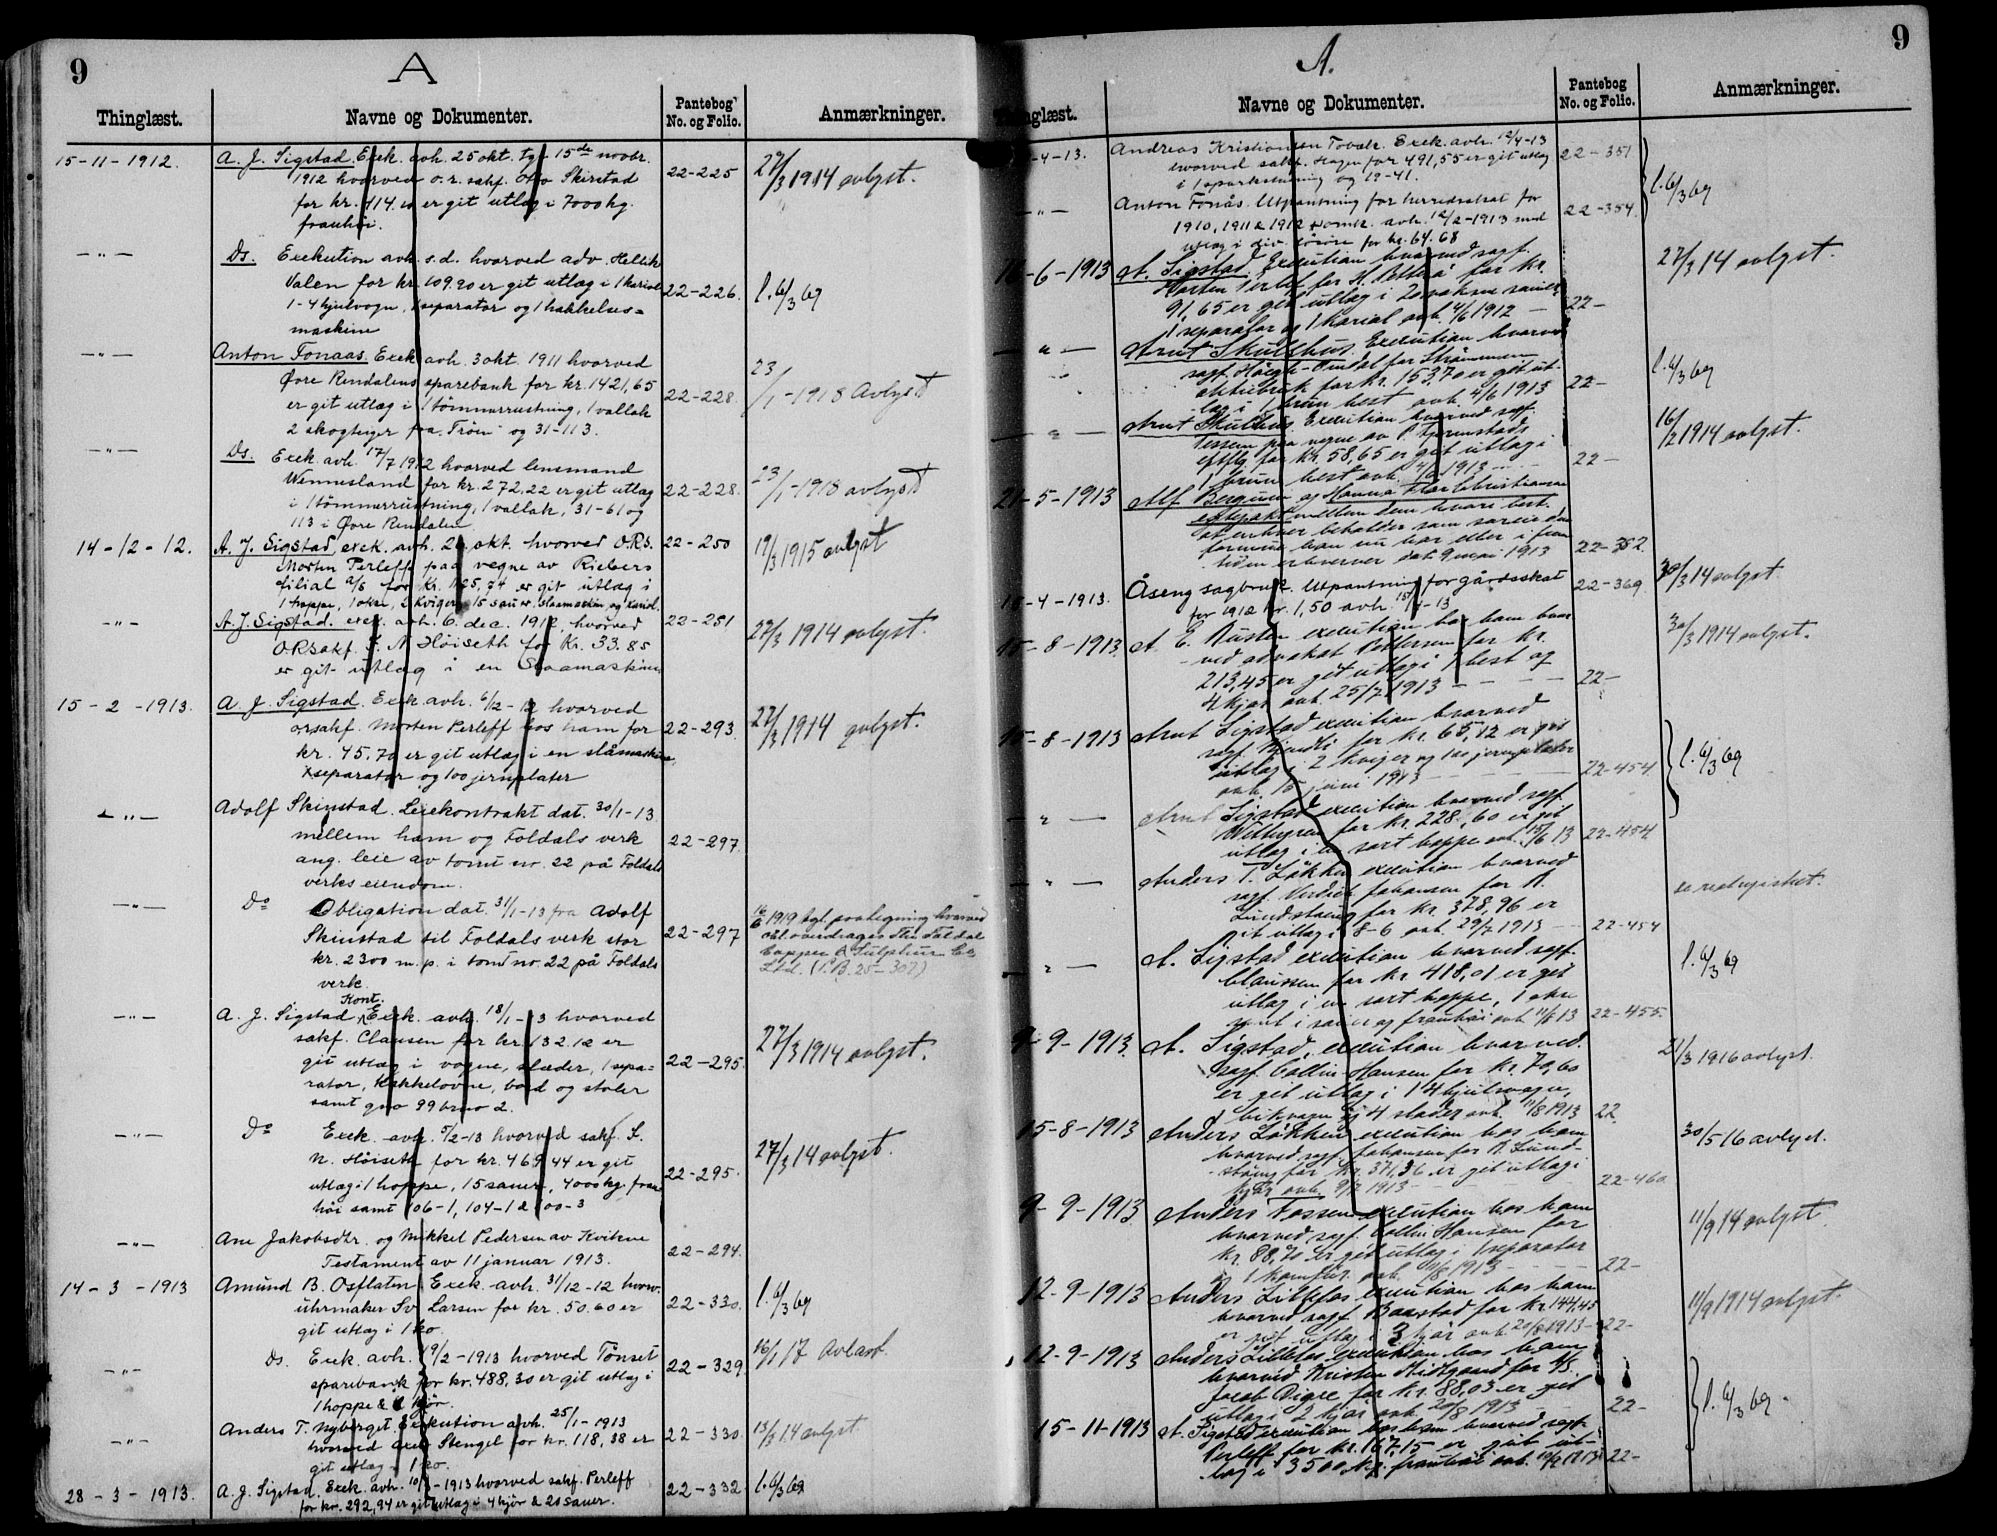 9
A
Thinglæst.
Navne og Dokumenter.
Pantebog
No. og Folio.
Anmærkninger.
15-11-1912.
A. J. Sigstad. Exek. avh. 25 okt. tgl. 15de novbr.
1912 hvorved o.r. sakf. Otto Skirstad
for kr. 414. er git utlæg i 7000 kg.
22-225
27/3 1914 avlyst.
Ds. Exekution avh. s.d. hvorved adv.
Valen for kr. 109.20 er git utlæg i 1 kariol
1-4 hjulvogn, 1 separator og 1 hakkelses=
maskine
22-226.
l. 6/3 69
Anton Tonaas. Exek. avh. 3 okt. 1911 hvorved
Øvre Rendalens sparebank for kr. 1421,65
er git utlæg i 1 tømmerrustning, 1 vallak
2 skogteiger fra Trøen og 31-113.
22-228.
23/1-1918 Avlyst
Ds. Exek. avh. 17/7 1912 hvorved lensmand
Wennesland for kr. 272,22 er git utlæg
i 1 tømmerrustning, 1 vallak, 31-61 og
113 i Øvre Rendalen
22-228.
23/1-1918 avlyst
14-12-12.
A. J. Sigstad, exek. avh. okt. hvorved O.R.S.
Morten Perleff paa vegne av Riebers
filial a/s for Kr. er git utlæg i
22-250
19/3 1915 avlyst
A. J. Sigstad. exek. avh. 6. dec. 1912 hvorved
ORsakf. N Høiseth for Kr. 33.85
er git utlæg i en Slaamaskine
22-251
27/3 1914 avlyst.
15-2-1913.
A. J. Sigstad. Exek. avh. 6/12-12 hvorved
orsakf. Morten Perleff hos ham for
kr. 45,70 er git utlæg i en slåmaskine,
1 separator og 100 jernplater
22-293.
27/3 1914 avlyst.
Adolf Skinstad. Leiekontrakt dat. 30/1-13
mellem ham og Foldals verk
ang. leie av tomt no. 22 på Foldals
verks eiendom.
22-297.
Do Obligation dat. 31/1-13 fra Adolf
Skinstad til Foldals verk stor
kr. 2300 m.p. i tomt no. 22 på Foldals
verk.
22-297
16/6 1919 tgl. paategning hvorved
obl. overdrages til Foldal
Copper & Sulphur Co
Ltd. (P.B. 25-307)
Kont.
A. J. Sigstad Exek. avh. 18/1-13 hvorved
sakf. Clausen for kr. 132.12 er
git utlæg i vogne, slæder, 1 sepa-
rator, Kakkelovne, bord og stoler
samt gno 99 bruno 2.
22-295.
27/3 1914 avlyst.
Do Exek. avh. 5/2-13 hvorved sakf. L.
N. Høiseth for kr. 469,44 er git
utlæg i 1 hoppe, 15 sauer, 4000 kg. frau
høi samt 106-1, 104-1 & 100-3
22-295.
27/3 14 avlyst.
Ane Jakobsdtr. og Mikkel Pedersen av Kvikne
Testament av 11 januar 1913.
22-294.
14-3-1913
Amund B. Osflaten Exek. avh. 31/12-12 hvorv.
uhrmaker Sv. Larsen for kr. 50.60 er
git utlæg i 1 ko.
22-330.
l. 6/3 69
Ds. Exek. avh. 19/2-1913 hvorved Tönset
sparebank for kr. 488,30 er git utlæg i
1 hoppe & 2 kjör.
22-329
16/1 17 Avlæst.
Anders T. Nyberget Exekution avh. 25/1-1913
hvorved Stengel for kr. 118,38 er
git utlæg i 1 ko.
22-330.
13/3 14 avlyst
28-3-1913.
A. J. Sigstad, Exek. avh. 10/3-1913 hvorved sakf. Perleff
for kr. 292,94 er git utlæg i 4 kjør & 20 sauer.
22-332
l. 6/3 69
9
A.
Thinglæst.
Navne og Dokumenter.
Pantebog
No. og Folio.
Anmærkninger.
-4-13.
Andreas Kristiansen Exek. avh. 12/4-13
hvorved sakf. Hagen for 491,55 er git utlæg
i og 19-41.
22-351
l. 6/3 69
Anton Tonås. Utpantning for herredsskat for
1910, 1911 & 1912 avh. 12/2-1913 med
utlæg i div. løsøre for kr. 64.68
22-354.
16-6-1913
A. Sigstad Exekution hvorved sagf.
Morten Perleff for H. for kr.
91,65 er git utlæg i 20 voksne sauer
1 separator og 1 kariol avh. 4/6 1912
22-
27/3 14 avlyst.
Arnt Skulhus. Exekution hvorved
sagf. Høegh-Omdal for Strømmen
for kr. 153,70 er git ut-
læg i 1 brun hest avh. 4/6 1913
22-
l. 6/3 69
Arnt Skulhus Exekution hvorved sagf.
Tessem paa vegne av P. Fjermstads
eftflg. for kr. 58,65 er git utlæg i
1 brun hest avh. 4/6 1913
22-
16/2 1914 avlyst.
21-5-1913
Alf Bergum og Hanna Christiansen
ektepakt mellem dem hvori best.
at enhver beholder som særeie den
formue han nu har eller i frem
tiden erhverver dat. 9 mai 1913
22-352.
15-4-1913.
Åseng sagbruk. Utpantning for gårdsskat
for 1912 kr. 1,50 avh. 15/4-13
22-369.
30/3 14 avlyst.
15-8-1913.
A. E. Rusten exekution hos ham hvor
ved advokat Pettersen for kr.
213,45 er git utlæg i 1 hest og
4 kjør avh. 25/7 1913
22-
30/3 1914 avlyst.
15-8-1913
Arnt Sigstad exekution hvorved
sagf. for kr. 65,12 er git
utlæg i 2 kviger og 100 jernplater
avh. 16 juni 1913
22-454.
l. 6/3 69
Arnt Sigstad exekution hvorved sagf.
for kr. 228,60 er git
utlæg i en sort hoppe avh. 18/6 13
22-454
Anders T. Løkken exekution hvorved
sagf. Johansen for A.
Lundstaeng for kr. 378,96 er
git utlæg i 8-6 avh. 29/7 1913
22-454
A. Sigstad exekution hvorved sagf.
Claussen for kr 418,01 er git
utlæg i en sort hoppe, 1 okse
samt i sauer og frauhøi avh 11/8 13
22-455.
l. 6/3 69
9-9-1913.
A. Sigstad, exekution hvorved.
sagf. Collin-Hansen for kr. 70,60
er git utlæg i 1 4 hjulsvogn,
og 4 slæder avh. 11/8 1913
22.
21/3 1916 avlyst.
15-8-1913
Anders Løkken exekution hos ham
hvorved sagf. Johansen for A. Lund-
staeng for kr. 371,36 er git utlæg i
kjør avh. 9/7 1913
22-460
30/5-16 avlyst.
9-9-1913
Anders Fossen exekution hos ham
hvorved sagf. Collin Hansen for
kr. 88,70 er git utlæg i 1 separator
og 1 komfur avh. 11/8 1913
22-
11/9 14 avlyst.
12-9-1913
Anders Lillefos exekution hos ham
hvorved sagf. Baastad for kr. 144,45
er git utlæg i 3 kjør avh. 20/8 1913
22-
11/9 1914 avlyst.
12-9-1913
Anders Lillefos exekution hos ham
hvorved Kristen Midtgaard for A/S.
Jacob Digre for kr. 88,03 er git
utlæg i 2 kjør avh. 20/8 1913
22-
l. 6/3 69.
15-11-1913
A. Sigstad exekution hos ham hvorved sagf.
Perleff for kr. 167,15 er git ut-
læg i 3500 kg. frauhøi avh. 1913
22-